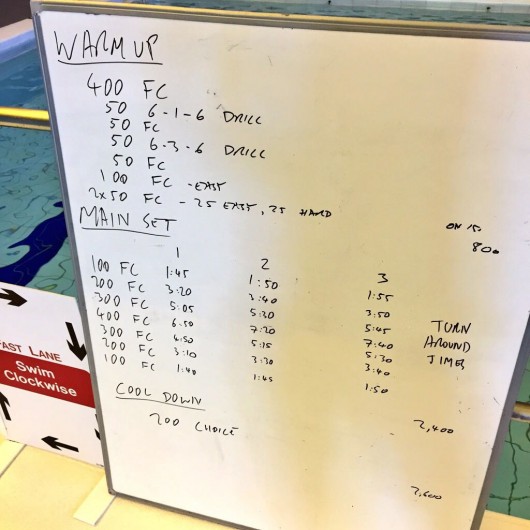 WARM UP
400 FC
50 6-1-6 DRILL
50 FC
50 6-3-6 DRILL
50 FC
100 FC - EASY
2x50 FC - 25 EASY, 25 HARD
ON 15
800
MAIN SET
1 2 3
100 FC 1:45 1:50 1:55
200 FC 3:20 3:40 3:50
300 FC 5:05 5:20 5:45
400 FC 6:50 7:20 7:40
300 FC 4:50 5:15 5:30
200 FC 3:10 3:30 3:40
100 FC 1:40 1:45 1:50
TURN
AROUND
TIMES
2,400
COOL DOWN
200 CHOICE
2,600
FAST LANE
Swim
Clockwise